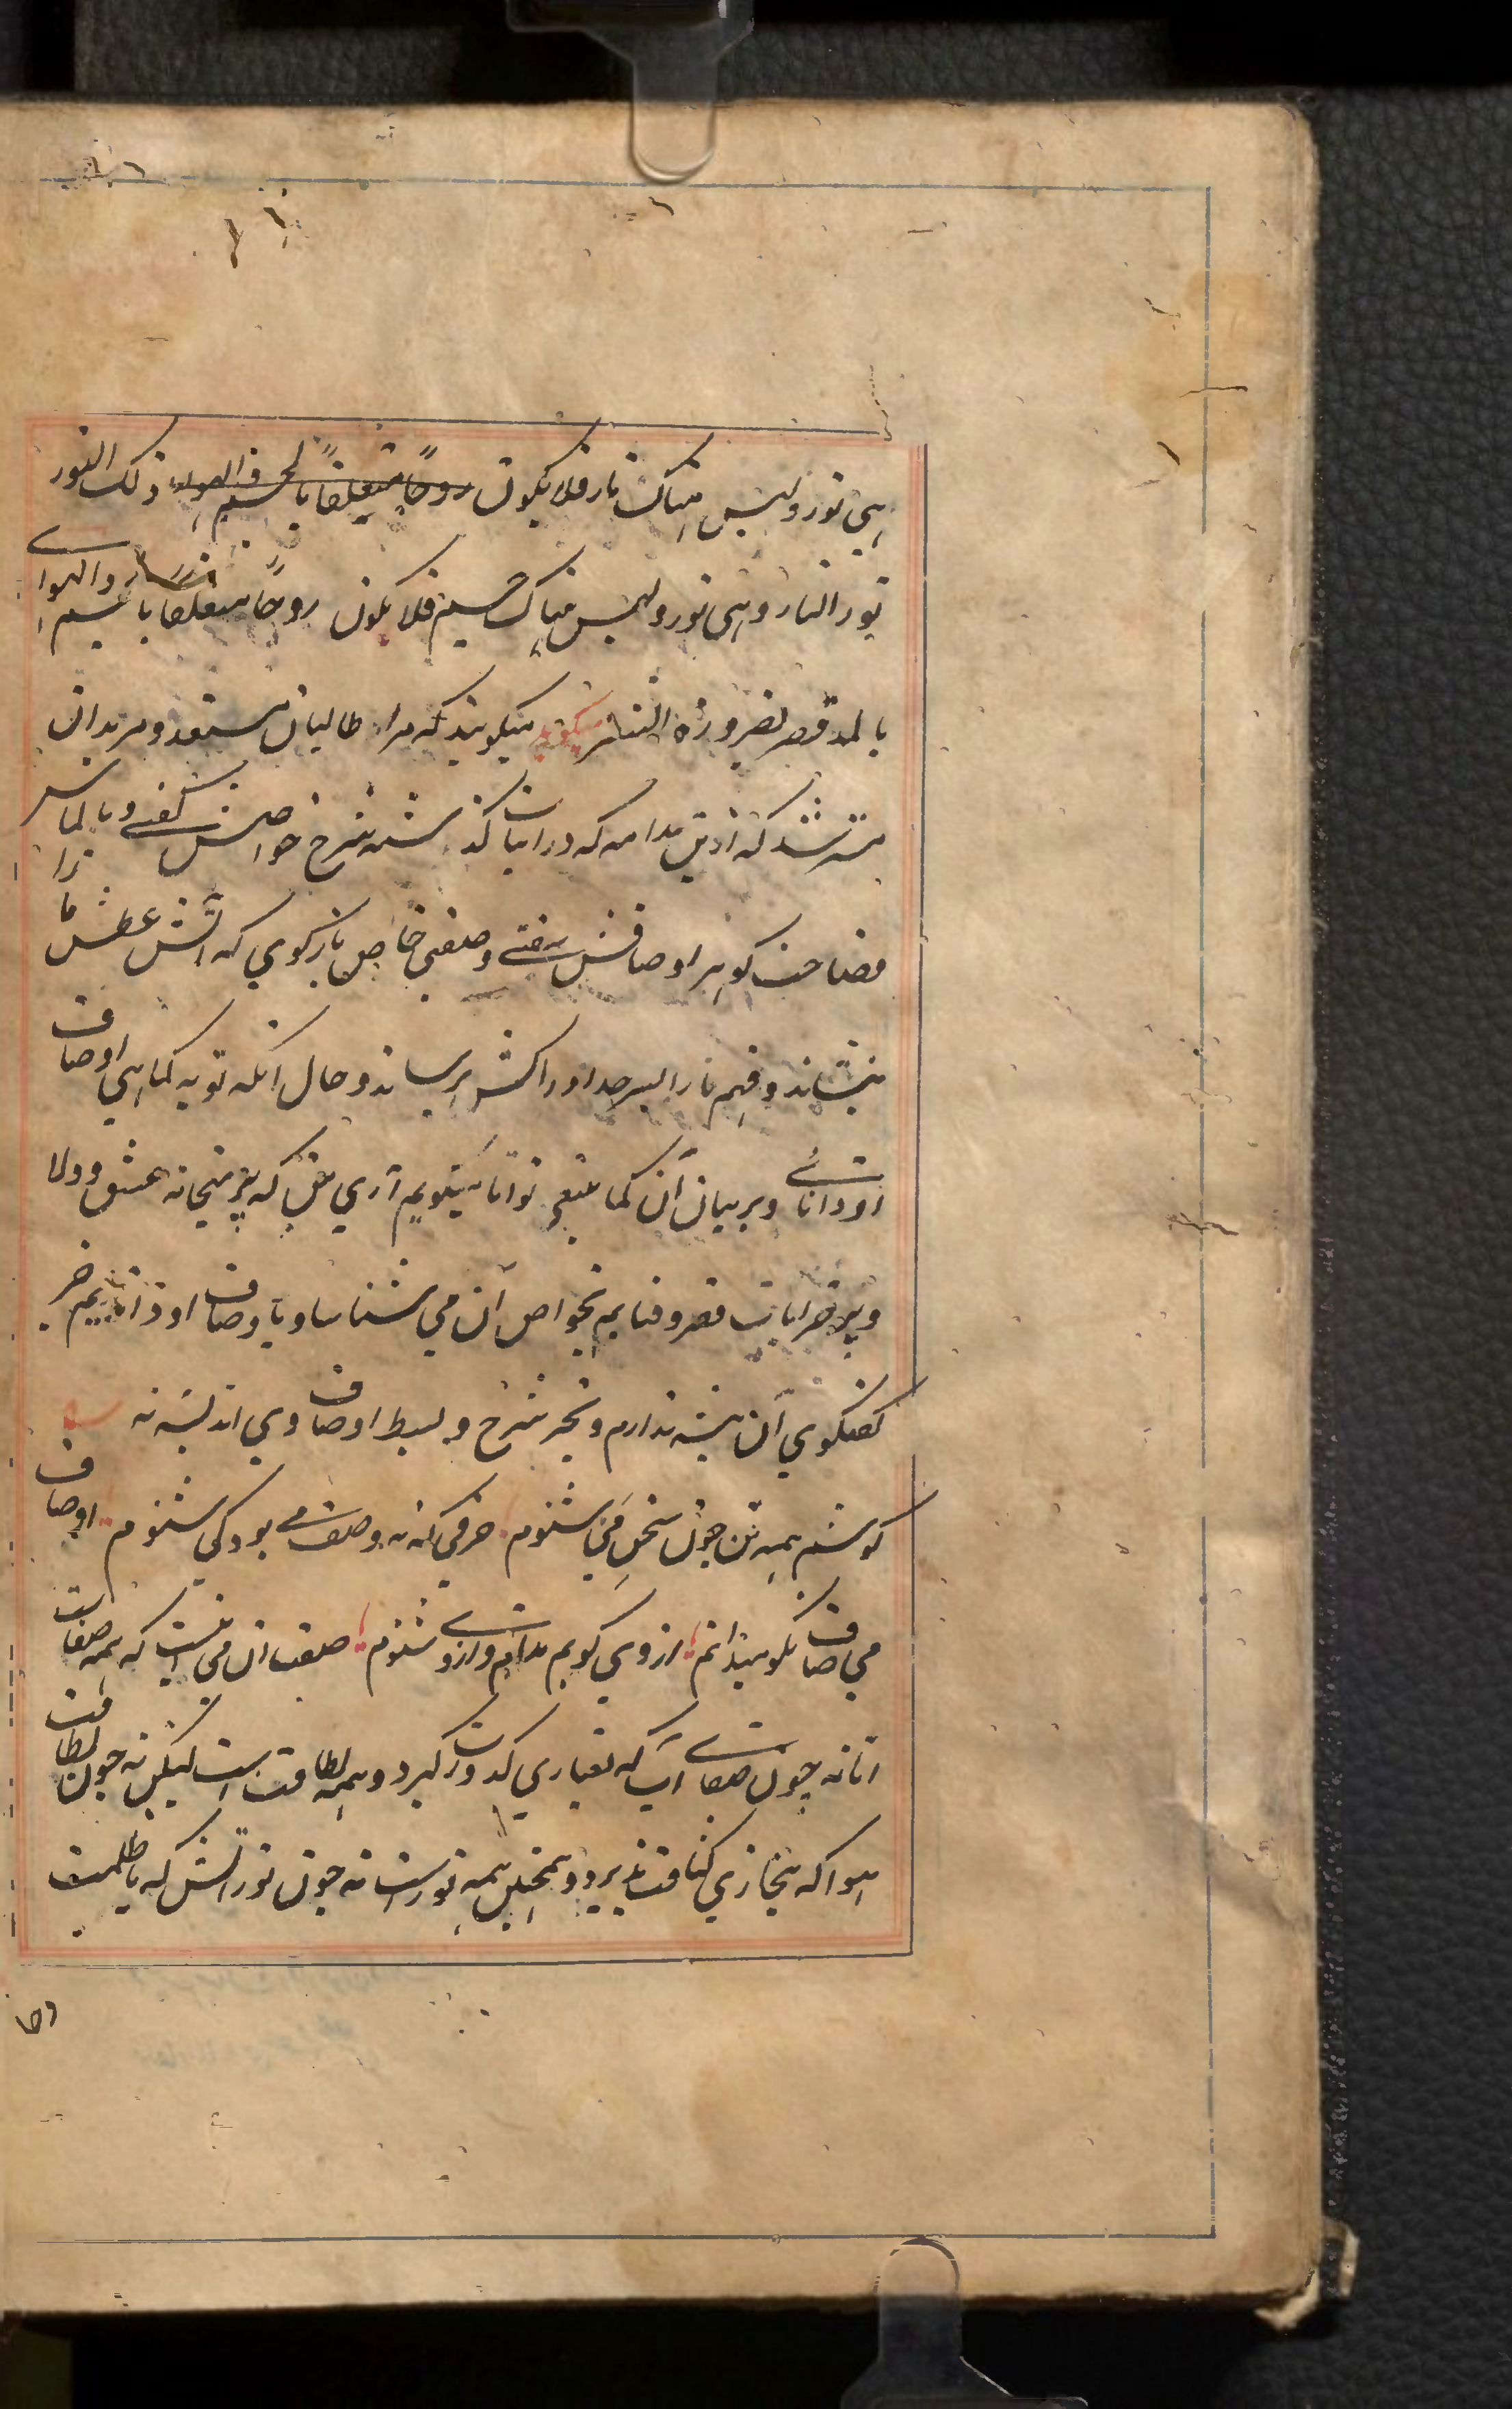 هی نور و لیس هناک نار فلا یکون روحًا متعلقًا بالجسم والهواء ذلک النور
نور النار و هی نور و لیس هناک جسم فلا یکون روحًا متعلقا با جسم والهوا
بالمد قصر لضرورة الشعر میگوید میگویند که مرا طالبان مستعد و مریدان
مسترشد که ازین مدامه که در ابیات گذشته شرح خواصش گفتی و بالماس
فصاحت گوهر اوصافش سفتی وصفی خاص بازگوی که آتش عطش ما را
بنشاند و فهم ما را بسرحد ادراکش برساند و حال آنکه تو به کماهی اوصاف
او دانائی و بر بیان آن کما ینبغی توانا میگویم آری منم که پیر میخانه عشق و ولا
و پیر خرابات فقر و فنایم بخواص آن می شناسا و باوصاف او دانایم جز
گفتگوی آن پیشه ندارم و بجز شرح و بسط اوصاف وی اندیشه نه
گوشم همه تن چون سخن می شنوم حرفی که نه وصف می بود کی شنوم اوصاف
می صاف نکو میدانم از وی گویم مدام و از وی شنوم صفت آن می اینست که همه صفاست
اما نه چون صفای آب که بغباری کدورت گیرد و همه لطافت است لیکن نه چون لطافت
هوا که ببخاری کثافت پذیرد و همچنین همه نور است نه چون نور آتش که با ظلمت